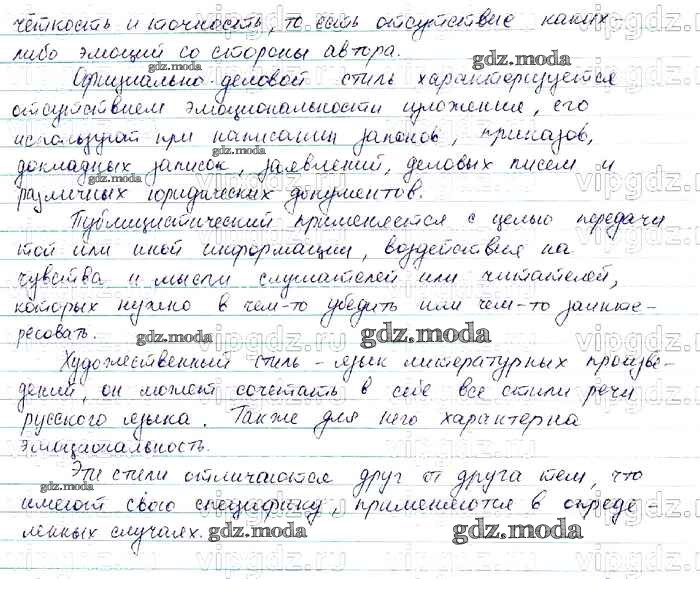 чёткость и точность, то есть отсутствие каких-
либо эмоций со стороны автора.
Официально-деловой стиль характеризуется
отсутствием эмоциональности изложения, его
используют при написании законов, приказов,
докладных записок, заявлений, деловых писем и
различных юридических документов.
Публицистический применяется с целью передачи
той или иной информации, воздействия на
чувства и мысли слушателей или читателей,
которых нужно в чем-то убедить или чем-то заинте-
ресовать.
Художественный стиль - язык литературных произве-
дений, он может сочетать в себе все стили речи
русского языка. Также для него характерна
эмоциональность.
Эти стили отличаются друг от друга тем, что
имеют свою специфику, применяются в опреде-
ленных случаях.
gdz.moda
vipgdz.ru